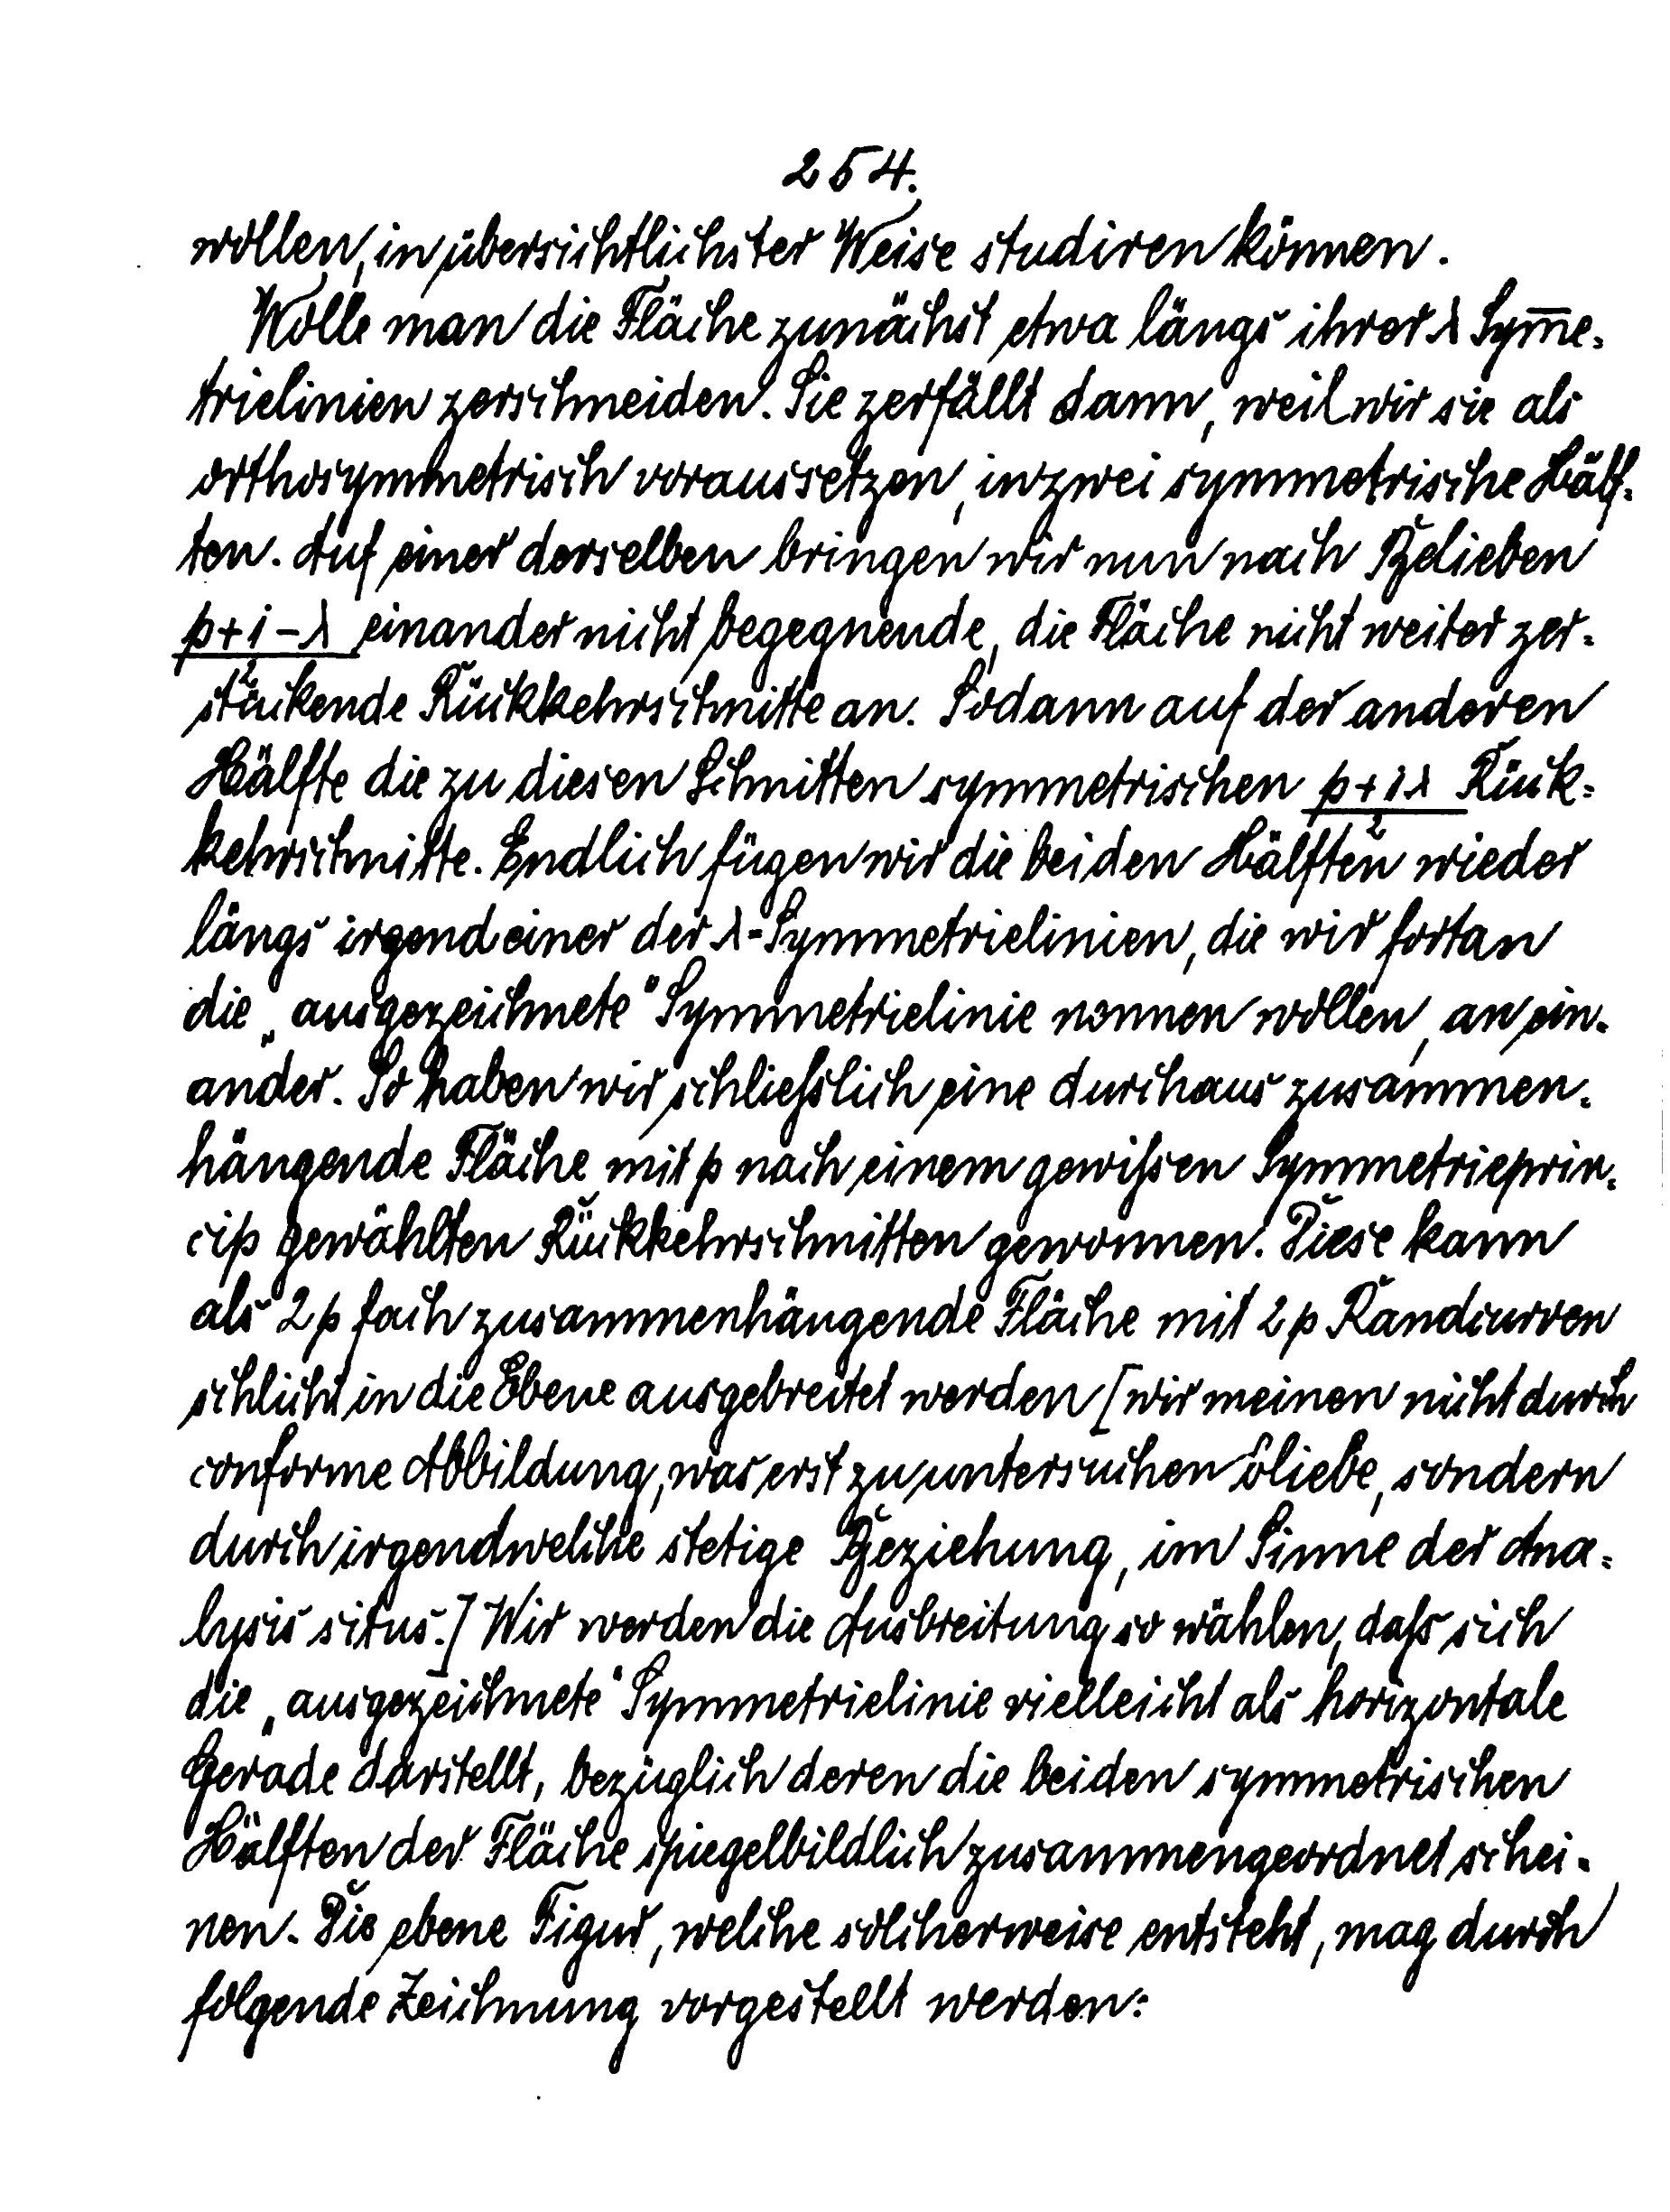 254.
wollen, in übersichtlichster Weise studiren können.
Wolle man die Fläche zunächst etwa längs ihrer λ Sym̅e-
trielinien zerschneiden. Sie zerfällt dann, weil wir sie als
orthosymmetrisch voraussetzen, in zwei symmetrische Hälf-
ten. Auf einer derselben bringen wir nun nach Belieben
(p+1-λ)/2 einander nicht begegnende, die Fläche nicht weiter zer-
stückende Rückkehrschnitte an. Sodann auf der anderen
Hälfte die zu diesen Schnitten symmetrischen (p+1λ)/2 Rück-
kehrschnitte. Endlich fügen wir die beiden Hälften wieder
längs irgend einer der λ-Symmetrielinien, die wir fortan
die „ausgezeichnete" Symmetrielinie nennen wollen, an ein-
ander. So haben wir schließlich eine durchaus zusammen-
hängende Fläche mit p nach einem gewißen Symmetrieprin-
cip gewählten Rückkehrschnitten gewonnen. Diese kann
als 2p fach zusammenhängende Fläche mit 2p Randcurven
schlicht in die Ebene ausgebreitet werden [wir meinen nicht durch
conforme Abbildung, was erst zu untersuchen bliebe, sondern
durch irgendwelche stetige Beziehung, im Sinne der Ana-
lysis situs.] Wir werden die Ausbreitung so wählen, daß sich
die „ausgezeichnete" Symmetrielinie vielleicht als horizontale
Gerade darstellt, bezüglich deren die beiden symmetrischen
Hälften der Fläche spiegelbildlich zusammengeordnet schei-
nen. Die ebene Figur, welche solcherweise entsteht, mag durch
folgende Zeichnung vorgestellt werden: